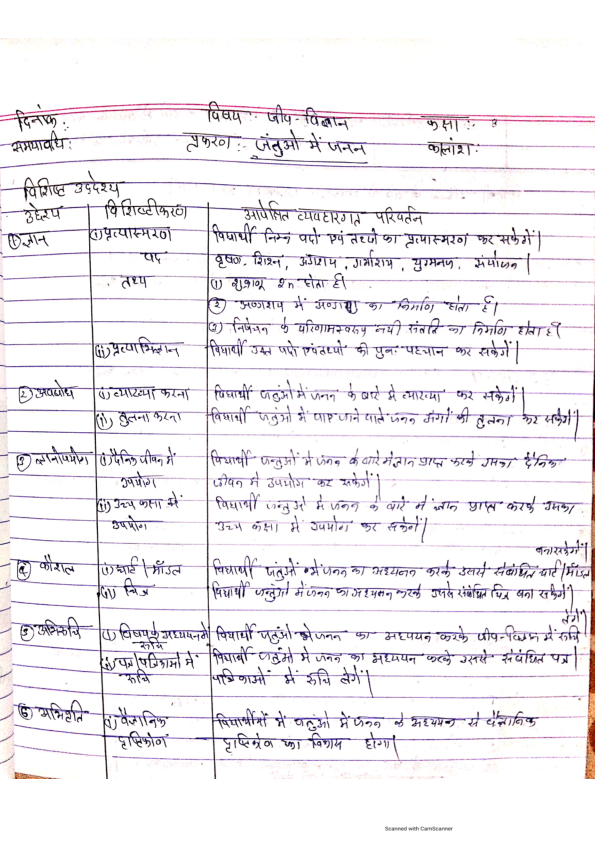 दिनांक : विषय :- जीव-विज्ञान कक्षा :-
समयावधि : प्रकरण :- जंतुओ में जनन कालांश :
विशिष्ट उद्देश्य
उद्देश्य विशिष्टीकरण अपेक्षित व्यवहारगत परिवर्तन
① ज्ञान (i) प्रत्यास्मरण विद्यार्थी निम्न पदों एवं तथ्यों का प्रत्यास्मरण कर सकेगें|
पद वृषण, शिश्न, अंडाशय, गर्भाशय, युग्मनज, संयोजन|
तथ्य (1) शुक्राणु 2n होता है|
② अण्डाशय में अण्डाणु का निर्माण होता है|
③ निषेचन के परिणामस्वरूप नयी संतति का निर्माण होता है|
(ii) प्रत्याभिज्ञान विद्यार्थी उक्त पदो एवं तथ्यों की पुनः पहचान कर सकेगें|
② अवबोध (i) व्याख्या करना विद्यार्थी जंतुओं में जनन के बारे में व्याख्या कर सकेगें|
(ii) तुलना करना विद्यार्थी जंतुओ में पाए जाने वाले जनन अंगों की तुलना कर सकेगें|
③ ज्ञानोपयोग (i) दैनिक जीवन में विद्यार्थी जन्तुओं में जनन के बारे में ज्ञान प्राप्त करके उसका दैनिक
उपयोग जीवन में उपयोग कर सकेगें|
(ii) उच्च कक्षा में विद्यार्थी जन्तुओ में जनन के बारे में ज्ञान प्राप्त करके उसका
उपयोग उच्च कक्षा में उपयोग कर सकेगें|
बना सकेगें|
④ कौशल (i) चार्ट / मॉडल विद्यार्थी जंतुओं में जनन का अध्ययन करके उससे संबंधित चार्ट / मॉडल
(ii) चित्र विद्यार्थी जन्तुओं में जनन का अध्ययन करके उससे संबंधित चित्र बना सकेगें|
लेंगे|
⑤ अभिरुचि (i) विषयक अध्ययन में विद्यार्थी जंतुओं में जनन का अध्ययन करके जीव-विज्ञान में रुचि
रूचि
(ii) पत्र पत्रिकाओं में विद्यार्थी जंतुओ में जनन का अध्ययन करके उससे संबंधित पत्र|
रूचि पत्रिकाओं में रुचि लेंगें|
⑥ अभिवृत्ति (i) वैज्ञानिक विद्यार्थीयों में जंतुओ में जनन के अध्ययन से वैज्ञानिक
दृष्टिकोण दृष्टिकोण का विकास होगा|
Scanned with CamScanner